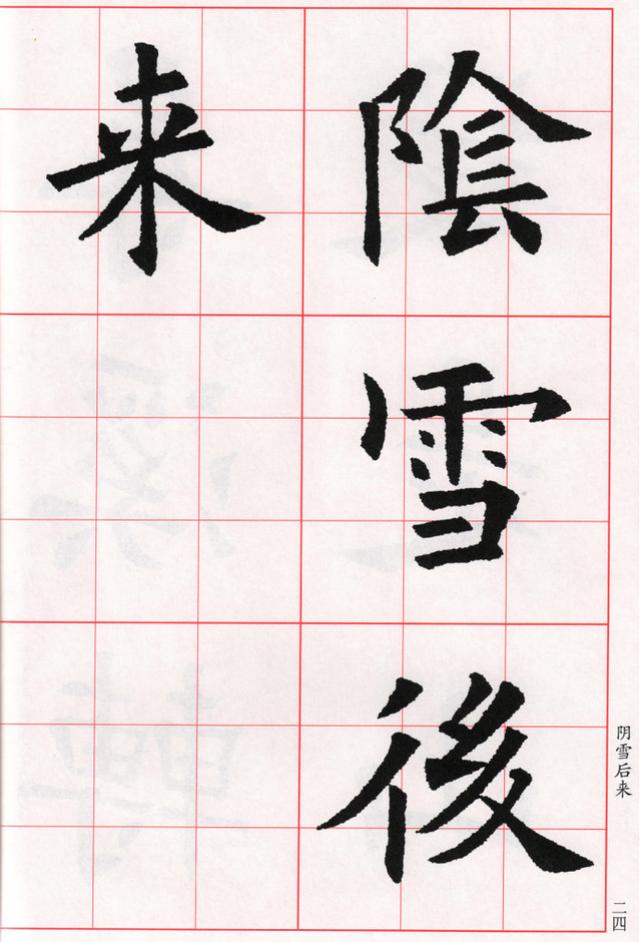 陰雪後
来
阴雪后来
二四